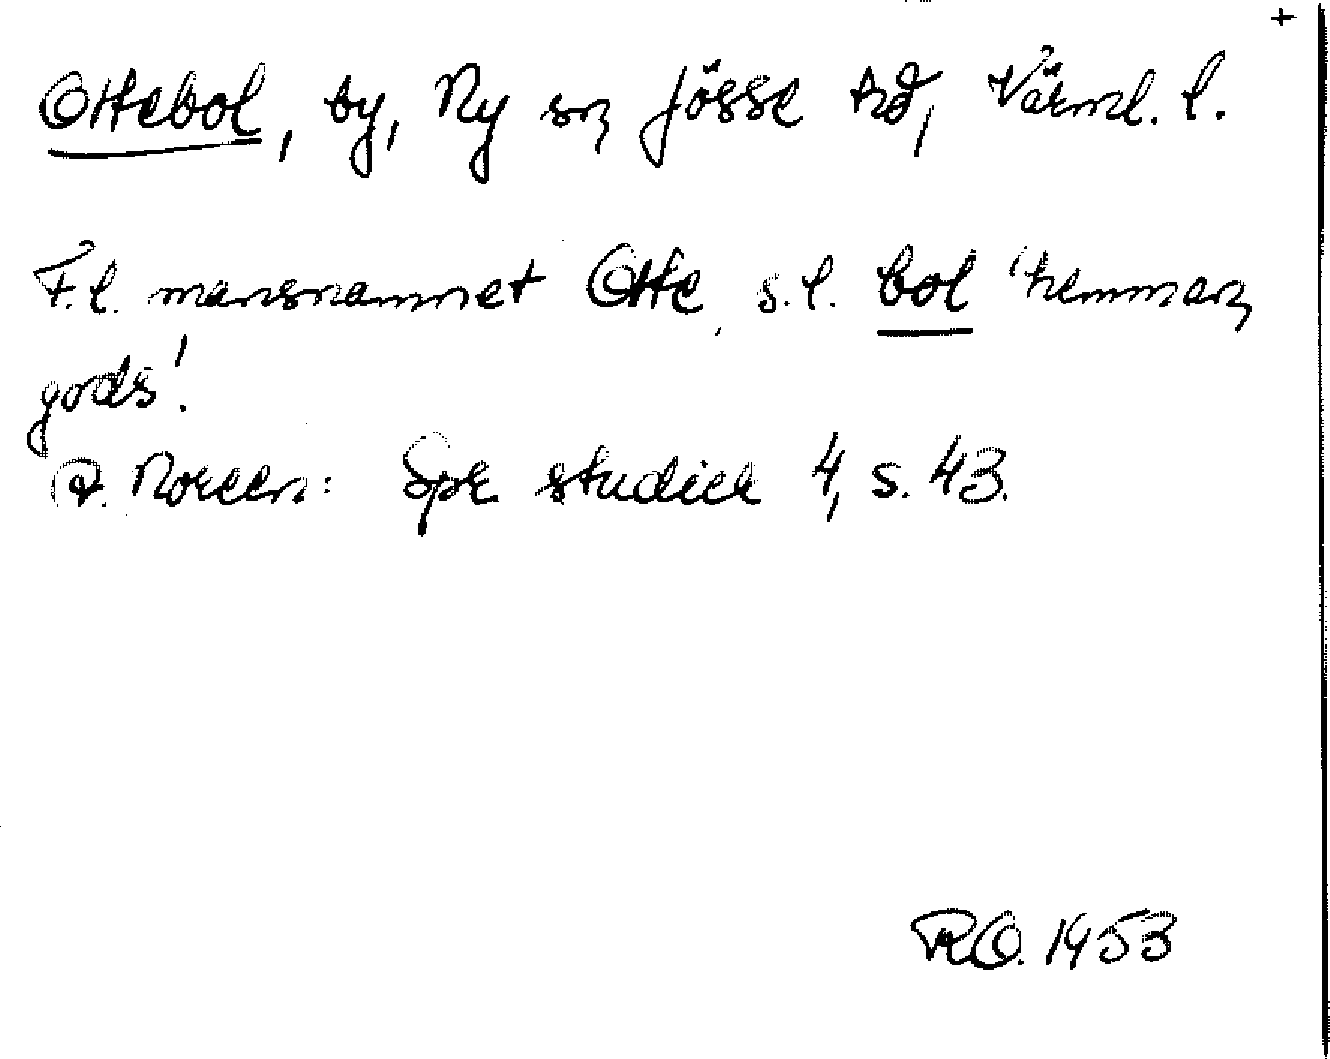 +
Ottebol, by, Ny sn, Jösse hd, Värml. l.
F.l. mansnamnet Otte, s.l. bol 'hemman,
gods'.
A. Noreen: Spr. studier 4, s. 43.
R.O. 1953